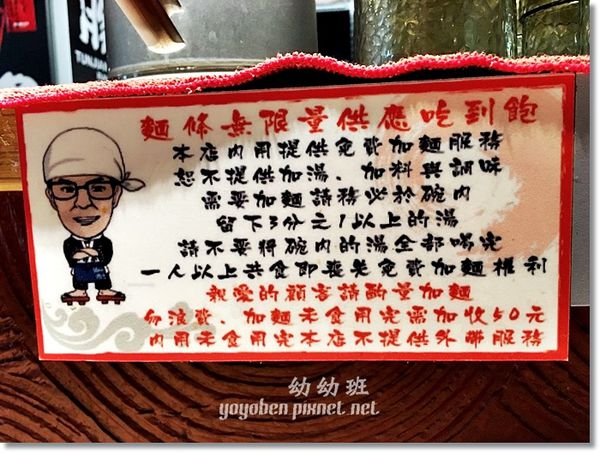 TUNJIHA
麵條無限量供應吃到飽
本店內用提供免費加麵服務
恕不提供加湯、加料與調味
需要加麵請務必於碗內
留下3分之1以上的湯
請不要將碗內的湯全部喝完
一人以上共食即喪失免費加麵權利
親愛的顧客請酌量加麵
勿浪費、加麵未食用完需加收50元
內用未食用完本店不提供外帶服務
幼幼班
yoyoben.pixnet.net